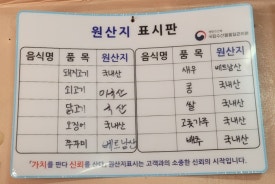 원산지 표시판
국립수산물품질관리원
음식명 품목 원산지 음식명 품목 원산지
돼지고기 국내산 새우 베트남산
쇠고기 미국산 콩 국내산
닭고기 국산 쌀 국내산
오징어 국내산 고춧가루 국내산
쭈꾸미 베트남산 배추 국내산
"가치를 판다 신뢰를 산다, 원산지표시는 고객과의 소중한 신뢰의 시작입니다.